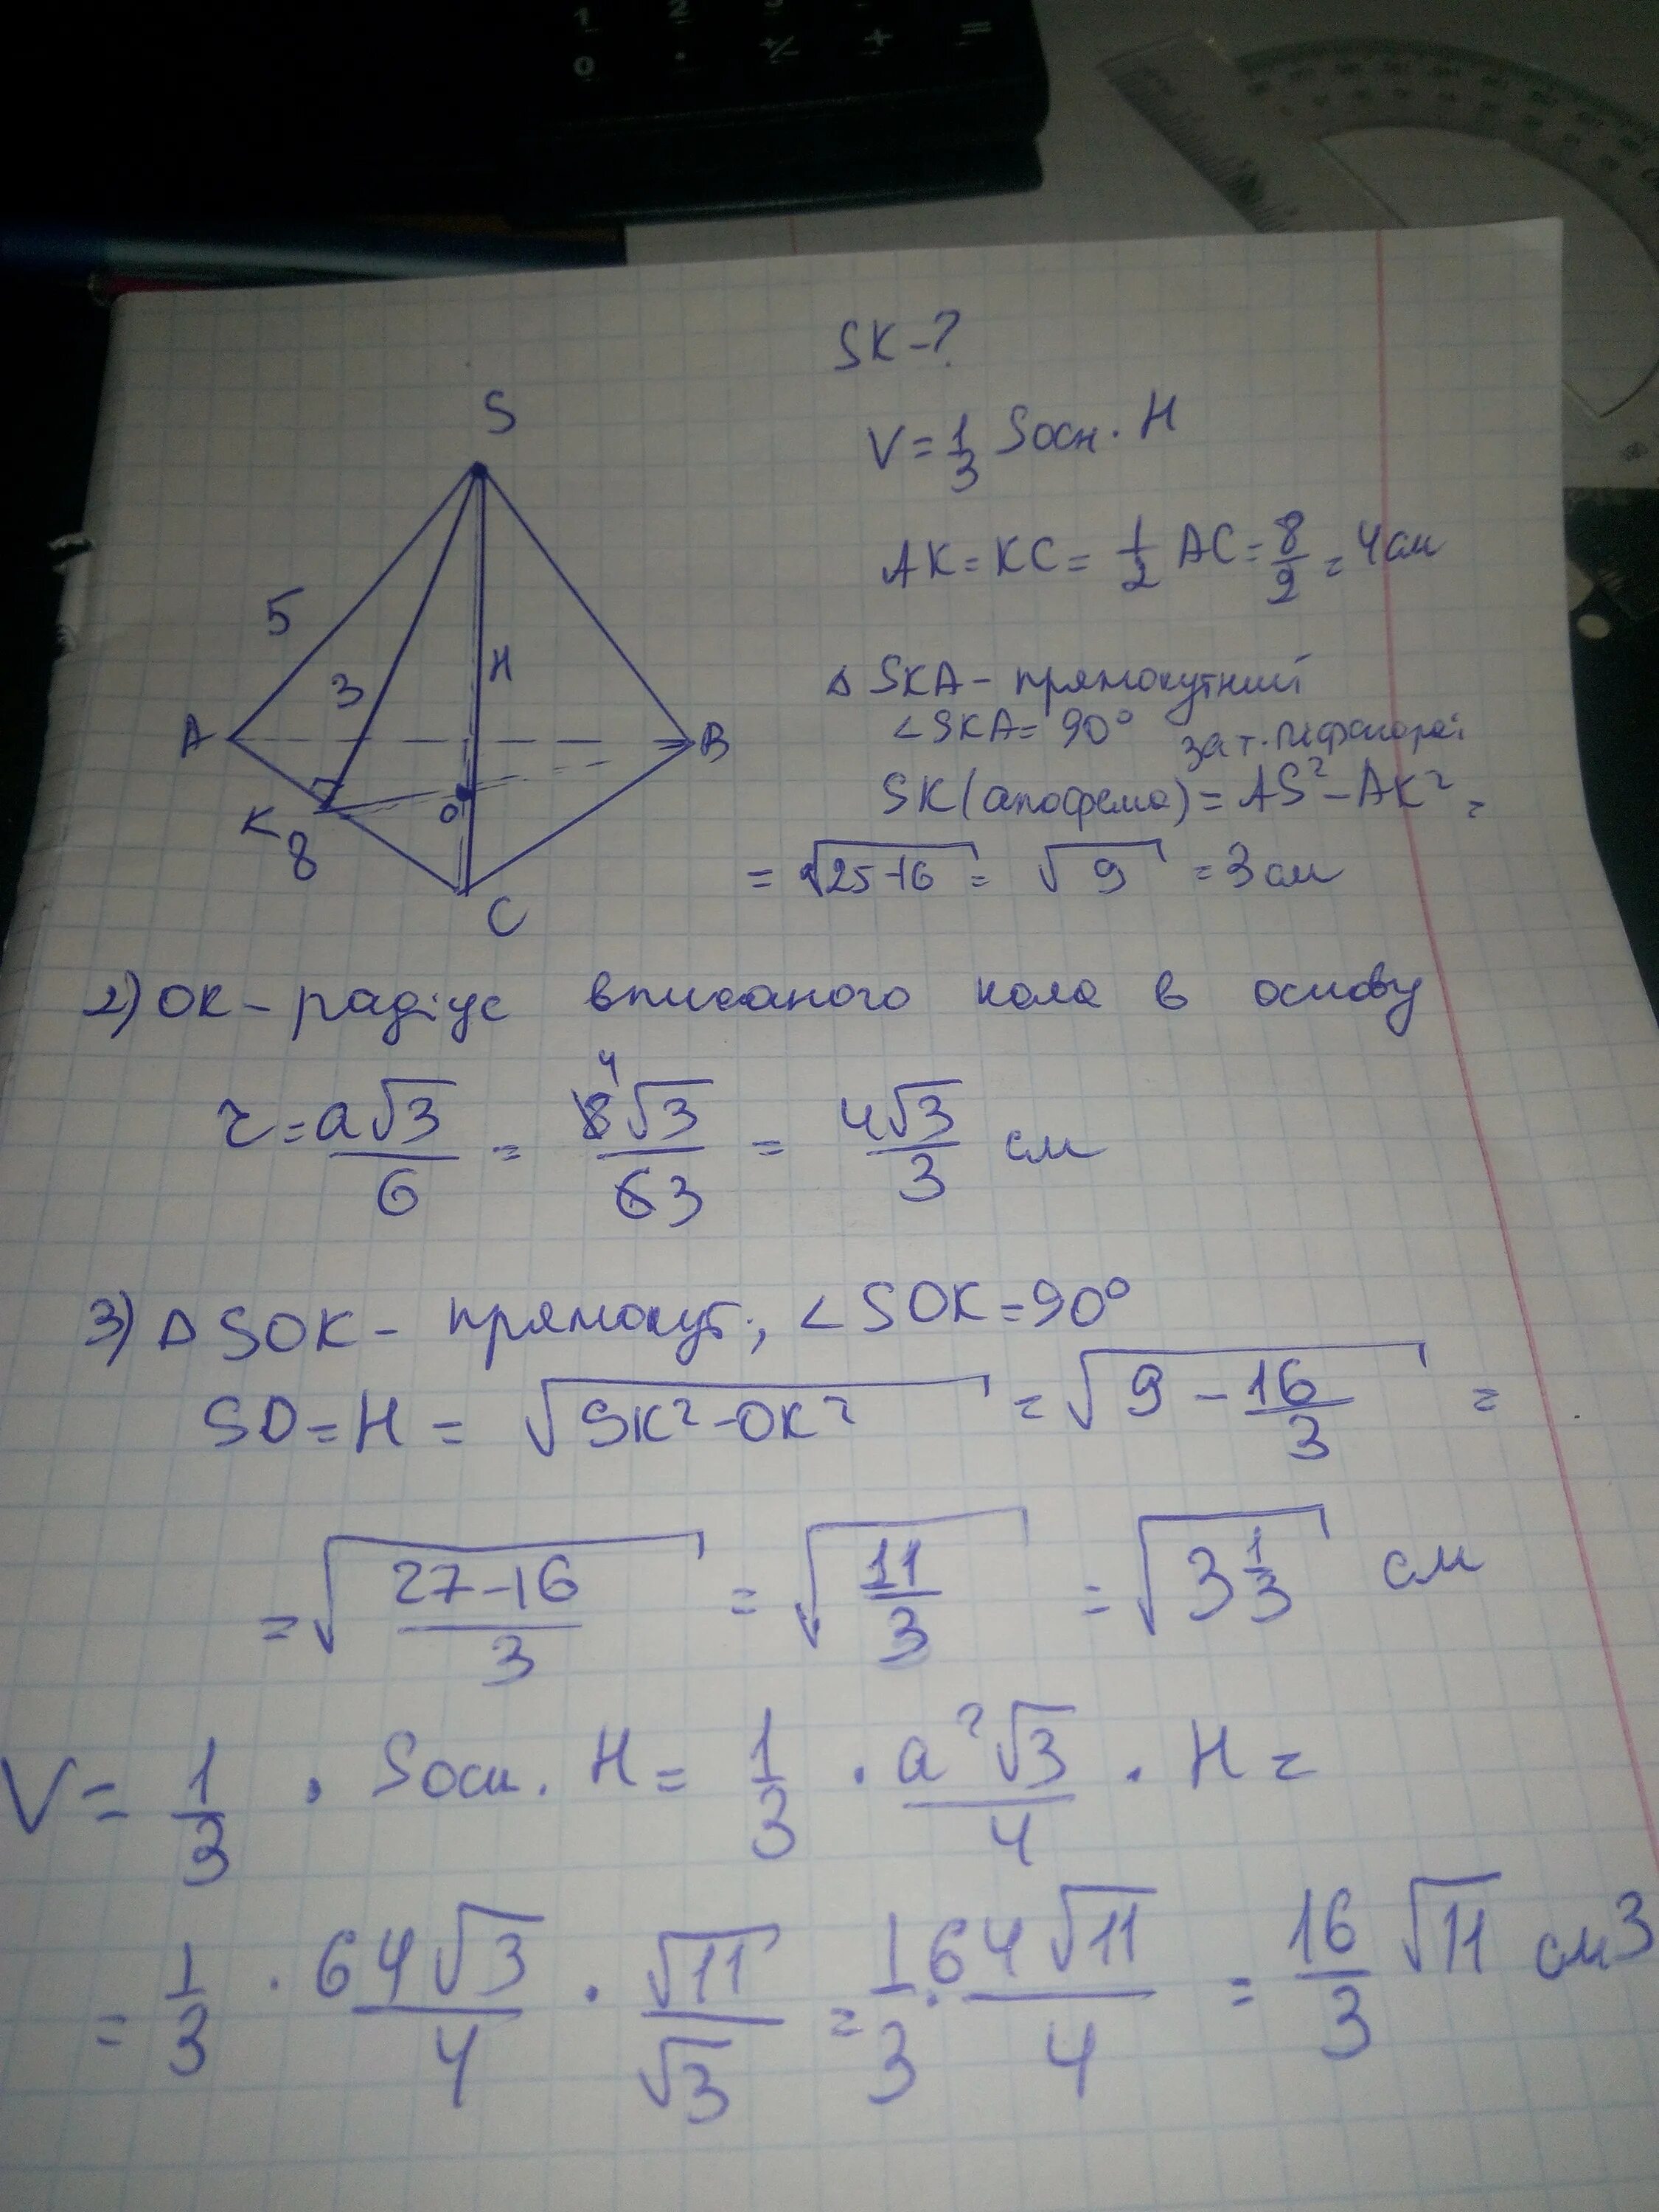 1 2 3
0 . +/- + =
SK-?
V = 1/3 Sосн. H
AK = KC = 1/2 AC = 8/2 = 4 см
Δ SKA - прямокутний
∠SKA = 90° за т. Піфагора:
SK (апофема) = AS² - AK² =
= √25-16 = √9 = 3 см
S
5
3
H
A
B
K
O
8
C
2) OK - радіус вписаного кола в основу
r = a√3/6 = 8√3/6 = 4√3/3 см
4
3
3) Δ SOK - прямокут., ∠SOK = 90°
SO = H = √SK² - OK² = √9 - 16/3 =
= √27-16/3 = √11/3 = √3 1/3 см
V = 1/3 · Sосн. H = 1/3 · a²√3/4 · H =
= 1/3 · 64√3/4 · √11/√3 = 1/3 · 64√11/4 = 16/3 √11 см3